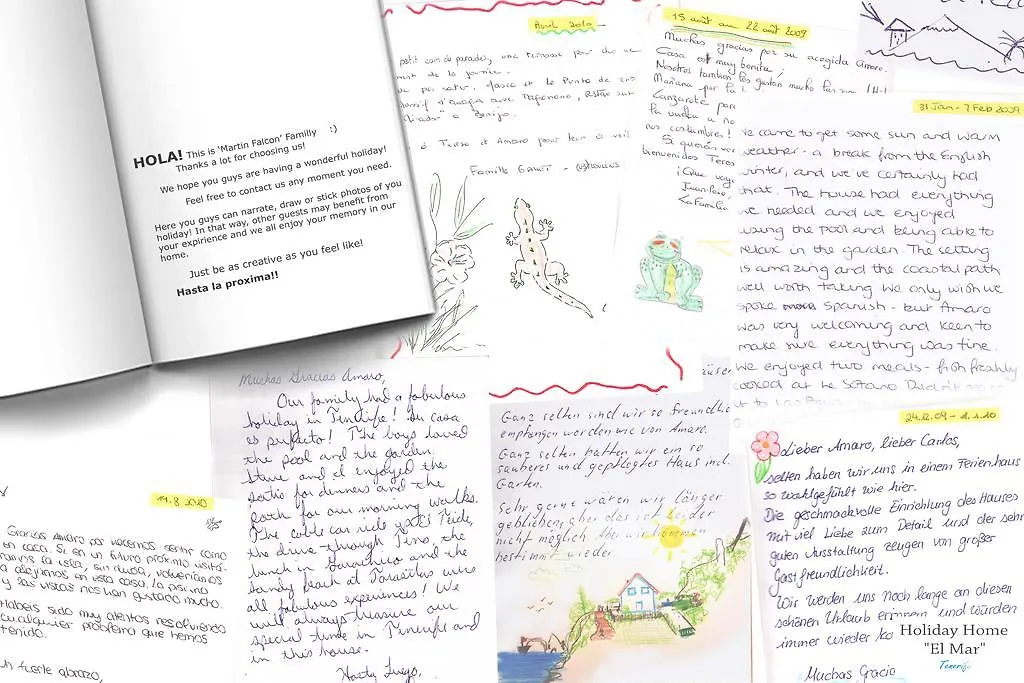 HOLA! This is 'Martin Falcon' Familly :)
Thanks a lot for choosing us!
We hope you guys are having a wonderful holiday!
Feel free to contact us any moment you need.
Here you guys can narrate, draw or stick photos of your
holiday! In that way, other guests may benefit from
your expirience and we all enjoy your memory in our
home.
Just be as creative as you feel like!
Hasta la proxima!!
Avril 2010
petit coin de paradis, une terrasse pour
de la journée.
Famille
15 août au 22 août 2009
Muchas gracias por su acogida Amaro.
Casa est muy bonita;
Nosotros tambien
Mañana por la
Lanzarote
la vuelta a
nos costumbres!
Si quereis
bienvenidos
La Familia
31 Jan - 7 Feb 2009
We came to get some sun and warm
weather - a break from the English
winter, and we've certainly had
that. The house had everything
we needed and we enjoyed
using the pool and being able to
relax in the garden. The setting
is amazing and the coastal path
well worth taking. We only wish we
spoke more Spanish - but Amaro
was very welcoming and keen to
make sure everything was fine.
We enjoyed two meals - fish freshly
cooked at
Muchas Gracias Amaro,
Our family had a fabulous
holiday in Tenerife! Su casa
es perfecto! The boys loved
the pool and the garden.
Steve and I enjoyed the
patio for dinners and the
path for our morning walks.
The cable car ride up El Teide,
the drive through Teno, the
lunch in Garachico and the
sandy beach at Teresitas were
all fabulous experiences! We
will always treasure our
special time in Tenerife and
in this house.
Hasta Luego,
Ganz selten sind wir so freundlich
empfangen worden wie von Amaro.
Ganz selten hatten wir ein so
sauberes und gepflegtes Haus incl.
Garten.
Sehr gerne wären wir länger
geblieben, aber das ist leider
nicht möglich. Aber wir kommen
bestimmt wieder.
24.12.09 - 1.1.10
Lieber Amaro, lieber Carlos,
selten haben wir uns in einem Ferienhaus
so wohlgefühlt wie hier.
Die geschmackvolle Einrichtung des Hauses
mit viel Liebe zum Detail und der sehr
guten Ausstattung zeugen von großer
Gastfreundlichkeit.
Wir werden uns noch lange an diesen
schönen Urlaub erinnern und würden
immer wieder
Muchas Gracia
14.8.2010
Gracias Amaro por hacernos sentir como
en casa. Si en un futuro próximo
la isla, sin duda, volveríamos
a alojarnos en esta casa. La piscina
y las vistas nos han gustado mucho.
Habeis sido muy atentos resolviendo
cualquier problema que hemos
tenido.
Un fuerte abrazo,
Holiday Home
"El Mar"
Tenerife